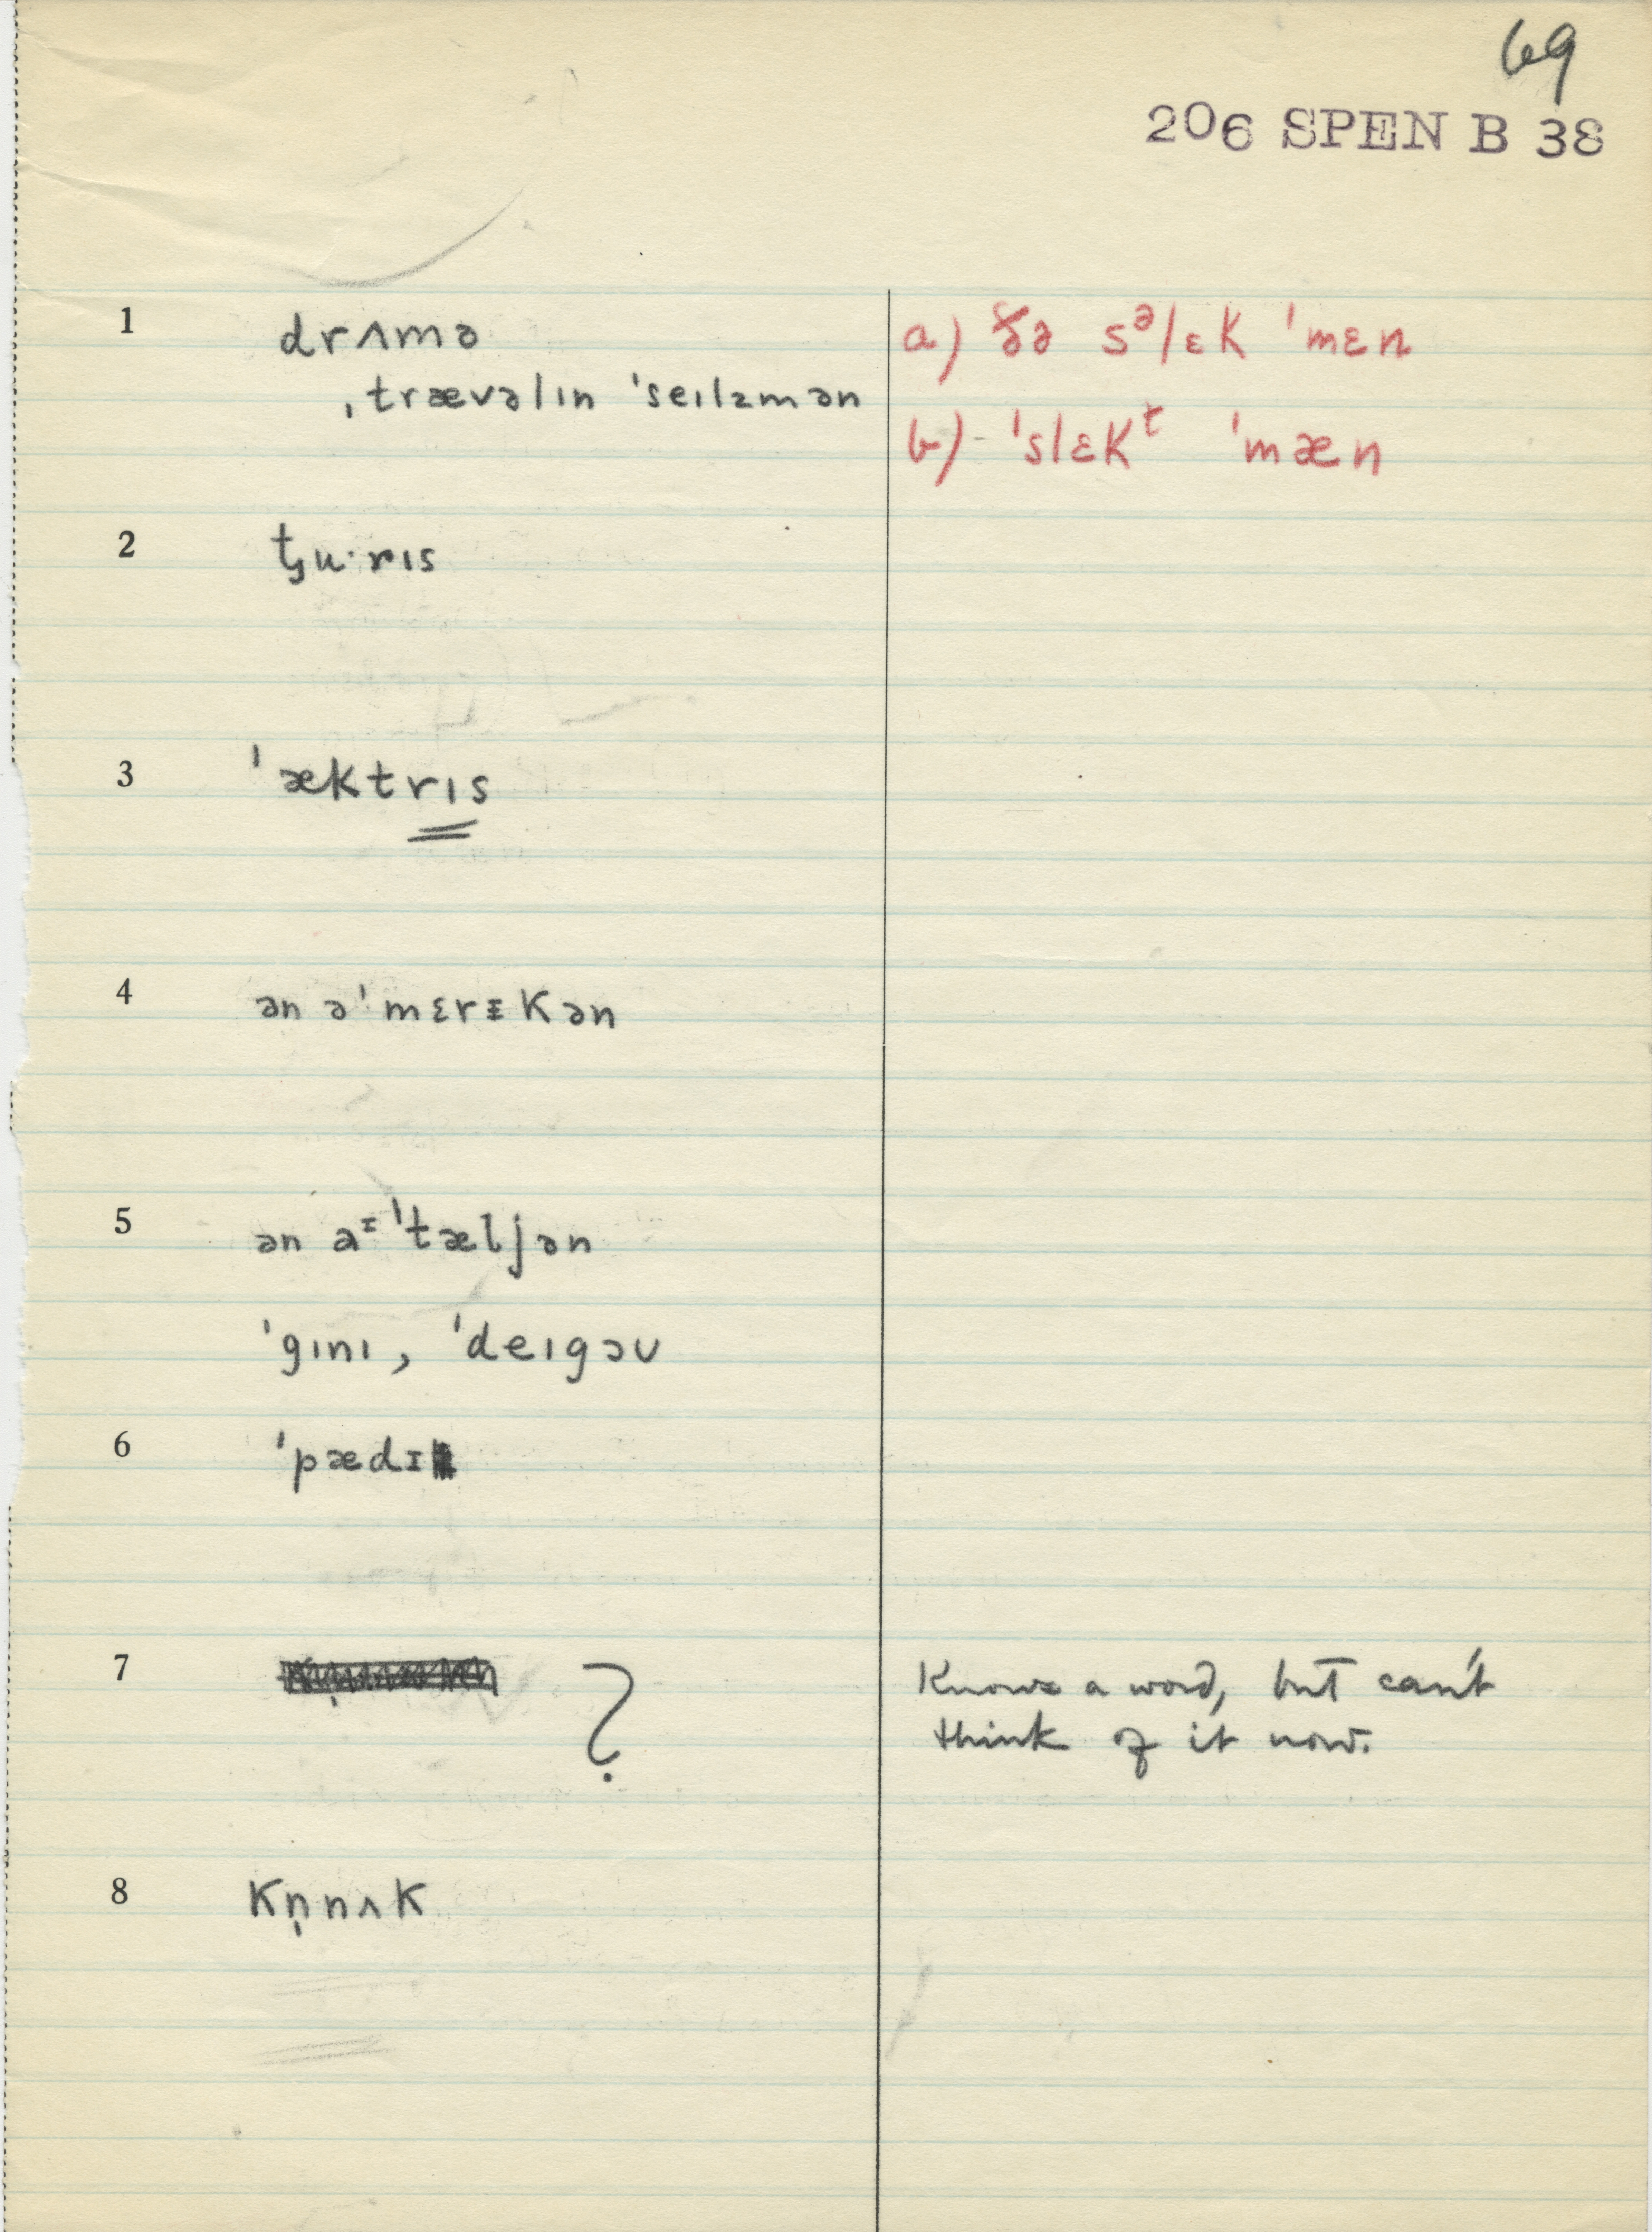 69
206 SPEN B 38
1 drʌmə
ˌtrævəlɪn ˈseɪlzmən
a) ðə sᵊlɛk ˈmɛn
b) - ˈslɛkᵗ ˈmæn
2 t̬u·rɪs
3 ˈæktrɪs
4 ən əˈmɛrɪkən
5 ən aᶦˈtæljən
ˈgɪnɪ, ˈdeɪgəʊ
6 ˈpædɪ
7 ?
Knows a word, but can't
think of it now.
8 kn̩nʌk